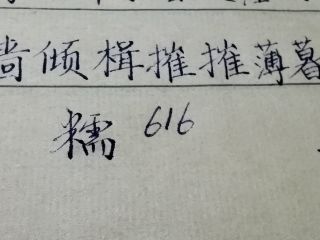 倾楫摧摧薄暮
糯 616